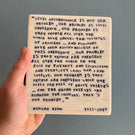 "CIVIL DISOBEDIENCE IS NOT OUR
PROBLEM. OUR PROBLEM IS
CIVIL OBEDIENCE. OUR PROBLEM IS
THAT PEOPLE ALL OVER THE
WORLD HAVE OBEYED THE DICTATES
OF LEADERS... AND MILLIONS
HAVE BEEN KILLED BECAUSE OF
THIS OBEDIENCE. OUR PROBLEM
IS THAT PEOPLE ARE OBEDIENT
ALL OVER THE WORLD IN THE
FACE OF POVERTY AND STARVATION
AND STUPIDITY, AND WAR, AND
CRUELTY. OUR PROBLEM IS THAT
PEOPLE ARE OBEDIENT WHILE THE
JAILS ARE FULL OF PETTY THIEVES
WHILE THE GRAND THIEVES ARE
RUNNING THE COUNTRY. THAT'S
OUR PROBLEM."
HOWARD ZINN 1922-2010